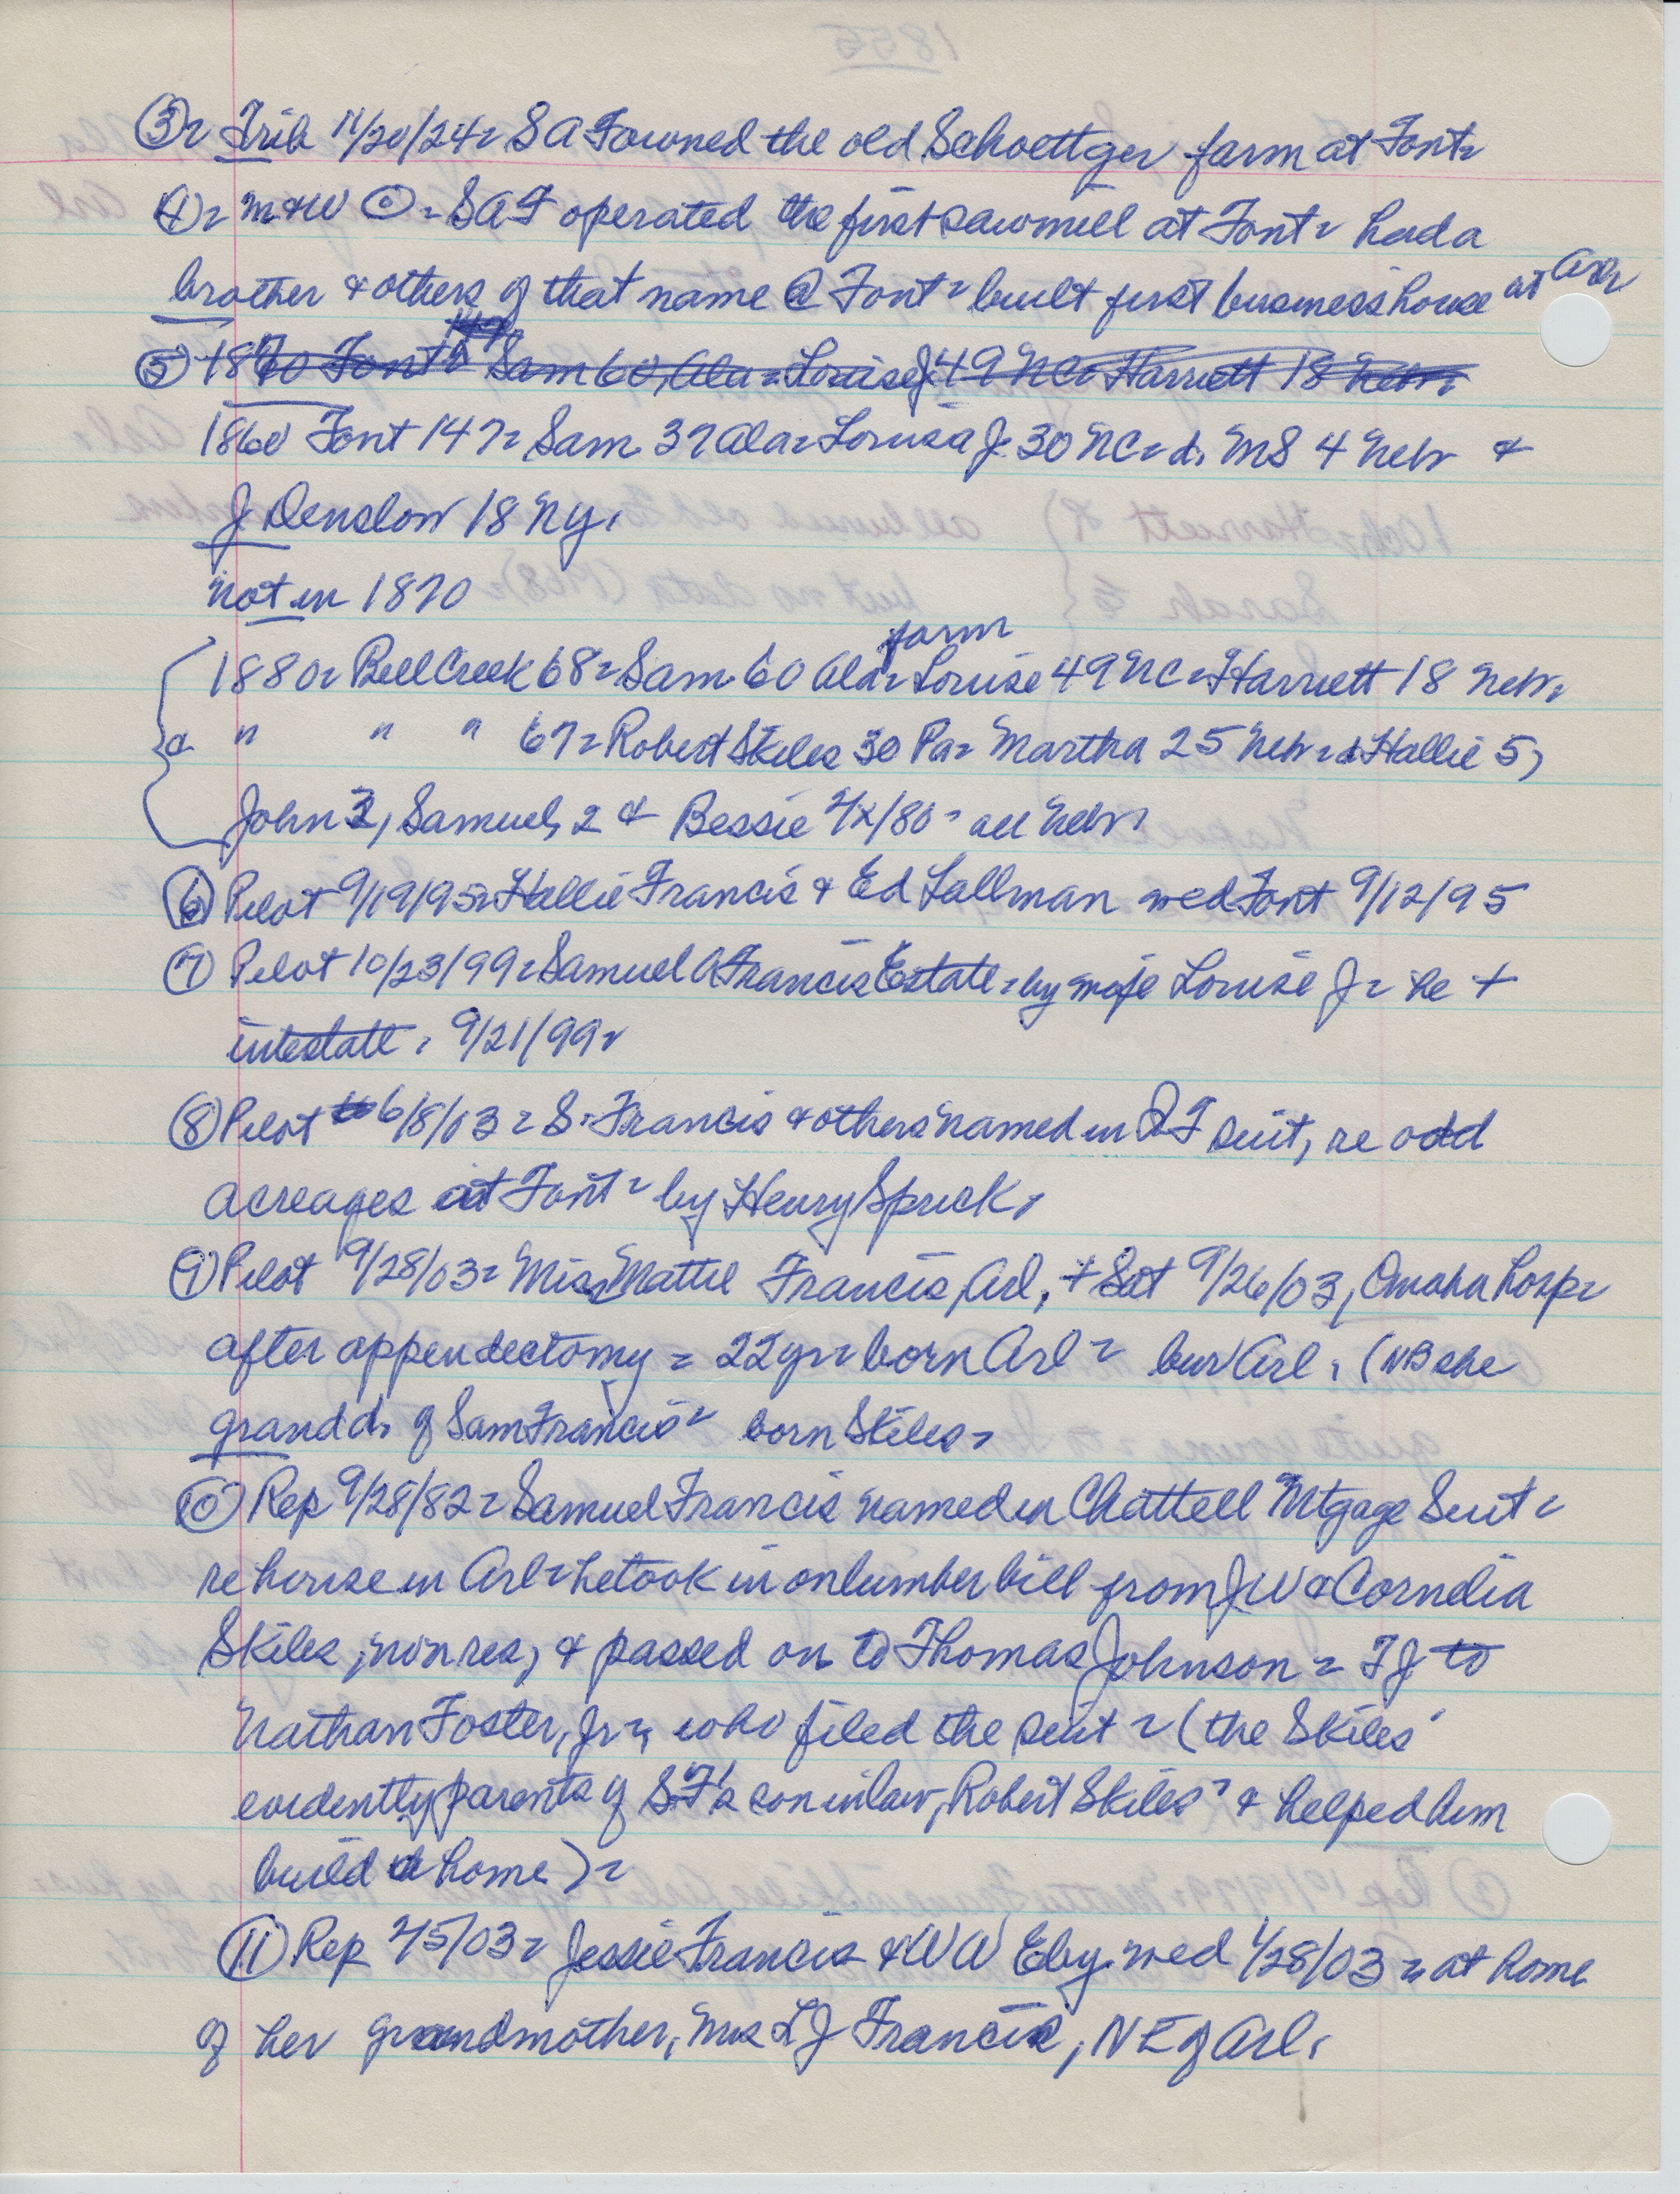 ③= Trib 11/20/24= SAF owned the old Schoettger farm at Font=
④= M&W ©= SAF operated the first sawmill at Font= had a
brother & others of that name @ Font= built first business house at Arl=
⑤ 1870 Font= Sam 60, Ala= Louise J 49 NC= Harriett 18 Nebr=
1860 Font 147= Sam 37 Ala= Louisa J 30 NC= d. MS 4 Nebr &
J Denslow 18 NY.
not in 1870
farm
1880= Bell Creek 68= Sam 60 Ala= Louise 49 NC= Harriett 18 Nebr.
& " " " 67= Robert Skiles 30 Pa= Martha 25 Nebr= d Hallie 5,
John 3, Samuel, 2 & Bessie 4/x/80= all Nebr.
⑥ Pilot 9/19/95= Hallie Francis & Ed Lallman wed Font 9/12/95
⑦ Pilot 10/23/99= Samuel A Francis Estate= by wife Louise J= he +
intestate, 9/21/99=
⑧ Pilot 6/8/03= S. Francis & others named in QT suit, re odd
acreages at Font= by Henry Sprick.
⑨ Pilot 9/28/03= Miss Mattie Francis, Arl, + Sat 9/26/03, Omaha hosp=
after appendectomy= 22yr= born Arl= bur Arl. (NB she
grandd. of Sam Francis= born Skiles=
⑩ Rep 9/28/82= Samuel Francis named in Chattell Mtgage Suit=
re house in Arl= he took in on lumber bill from JW & Cornelia
Skiles, nonres, & passed on to Thomas Johnson= TJ to
Nathan Foster, Jr=, who filed the suit= (the Skiles'
evidently parents of SF's son in law, Robert Skiles= & helped him
build a home)=
⑪ Rep 2/5/03= Jessie Francis & WW Eby wed 1/28/03= at home
of her grandmother, Mrs LJ Francis, NE of Arl.